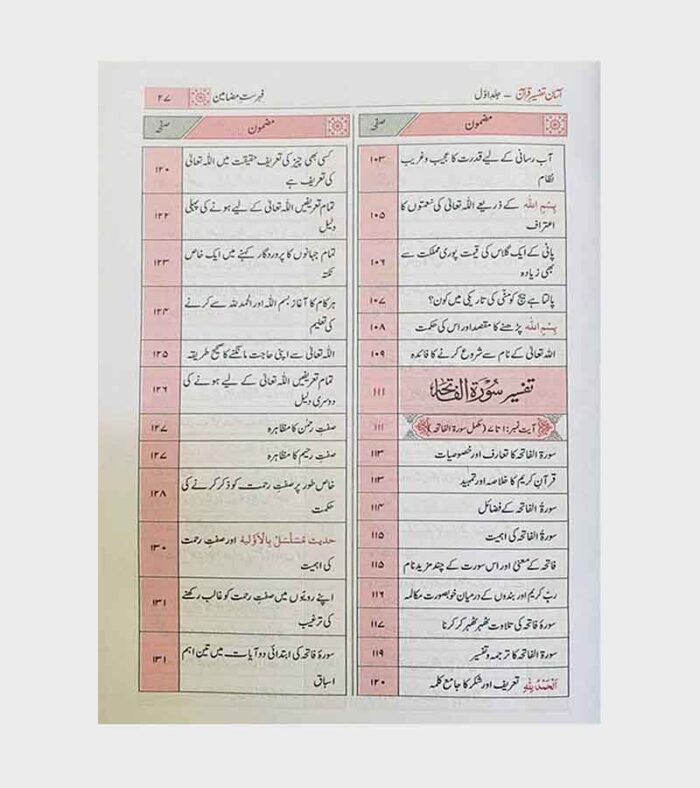 آسان تفسیر قرآن – جلد اوّل
فہرستِ مضامین
۴۷
مضمون
صفحہ
آب رسانی کے لیے قدرت کا عجیب و غریب
نظام
۱۰۳
بِسْمِ اللہ کے ذریعے اللہ تعالیٰ کی نعمتوں کا
اعتراف
۱۰۵
پانی کے ایک گلاس کی قیمت پوری مملکت سے
بھی زیادہ
۱۰۶
پالتا ہے بیج کو مٹی کی تاریکی میں کون؟
۱۰۷
بِسْمِ اللہ پڑھنے کا مقصد اور اس کی حکمت
۱۰۸
اللہ تعالیٰ کے نام سے شروع کرنے کا فائدہ
۱۰۹
تفسیر سُوْرَۃُ الْفَاتِحَۃ
۱۱۱
آیت نمبر: ۱ تا ۷ (مکمل سورۃ الفاتحہ)
۱۱۱
سورۃ الفاتحہ کا تعارف اور خصوصیات
۱۱۳
قرآنِ کریم کا خلاصہ اور تمہید
۱۱۳
سورۃ الفاتحہ کے فضائل
۱۱۴
سورۃ الفاتحہ کی اہمیت
۱۱۵
فاتحہ کے معنیٰ اور اس سورت کے چند مزید نام
۱۱۵
ربّ کریم اور بندوں کے درمیان خوبصورت مکالمہ
۱۱۶
سورۂ فاتحہ کی تلاوت ٹھہر ٹھہر کر کرنا
۱۱۷
سورۃ الفاتحہ کا ترجمہ و تفسیر
۱۱۹
اَلْحَمْدُ لِلّٰہِ تعریف اور شکر کا جامع کلمہ
۱۲۰
مضمون
صفحہ
کسی بھی چیز کی تعریف حقیقت میں اللہ تعالیٰ
کی تعریف ہے
۱۲۰
تمام تعریفیں اللہ تعالیٰ کے لیے ہونے کی پہلی
دلیل
۱۲۲
تمام جہانوں کا پروردگار کہنے میں ایک خاص
نکتہ
۱۲۳
ہر کام کا آغاز بسم اللہ اور الحمد للہ سے کرنے
کی تعلیم
۱۲۴
اللہ تعالیٰ سے اپنی حاجت مانگنے کا صحیح طریقہ
۱۲۵
تمام تعریفیں اللہ تعالیٰ کے لیے ہونے کی
دوسری دلیل
۱۲۶
صفتِ رحمٰن کا مظاہرہ
۱۲۷
صفتِ رحیم کا مظاہرہ
۱۲۷
خاص طور پر صفتِ رحمت کو ذکر کرنے کی
حکمت
۱۲۸
حدیث مُسَلْسَلْ بِالْاَوَّلِیَۃ اور صفتِ رحمت
کی اہمیت
۱۳۰
اپنے رویّوں میں صفتِ رحمت کو غالب رکھنے
کی ترغیب
۱۳۱
سورۂ فاتحہ کی ابتدائی دو آیات میں تین اہم
اسباق
۱۳۱